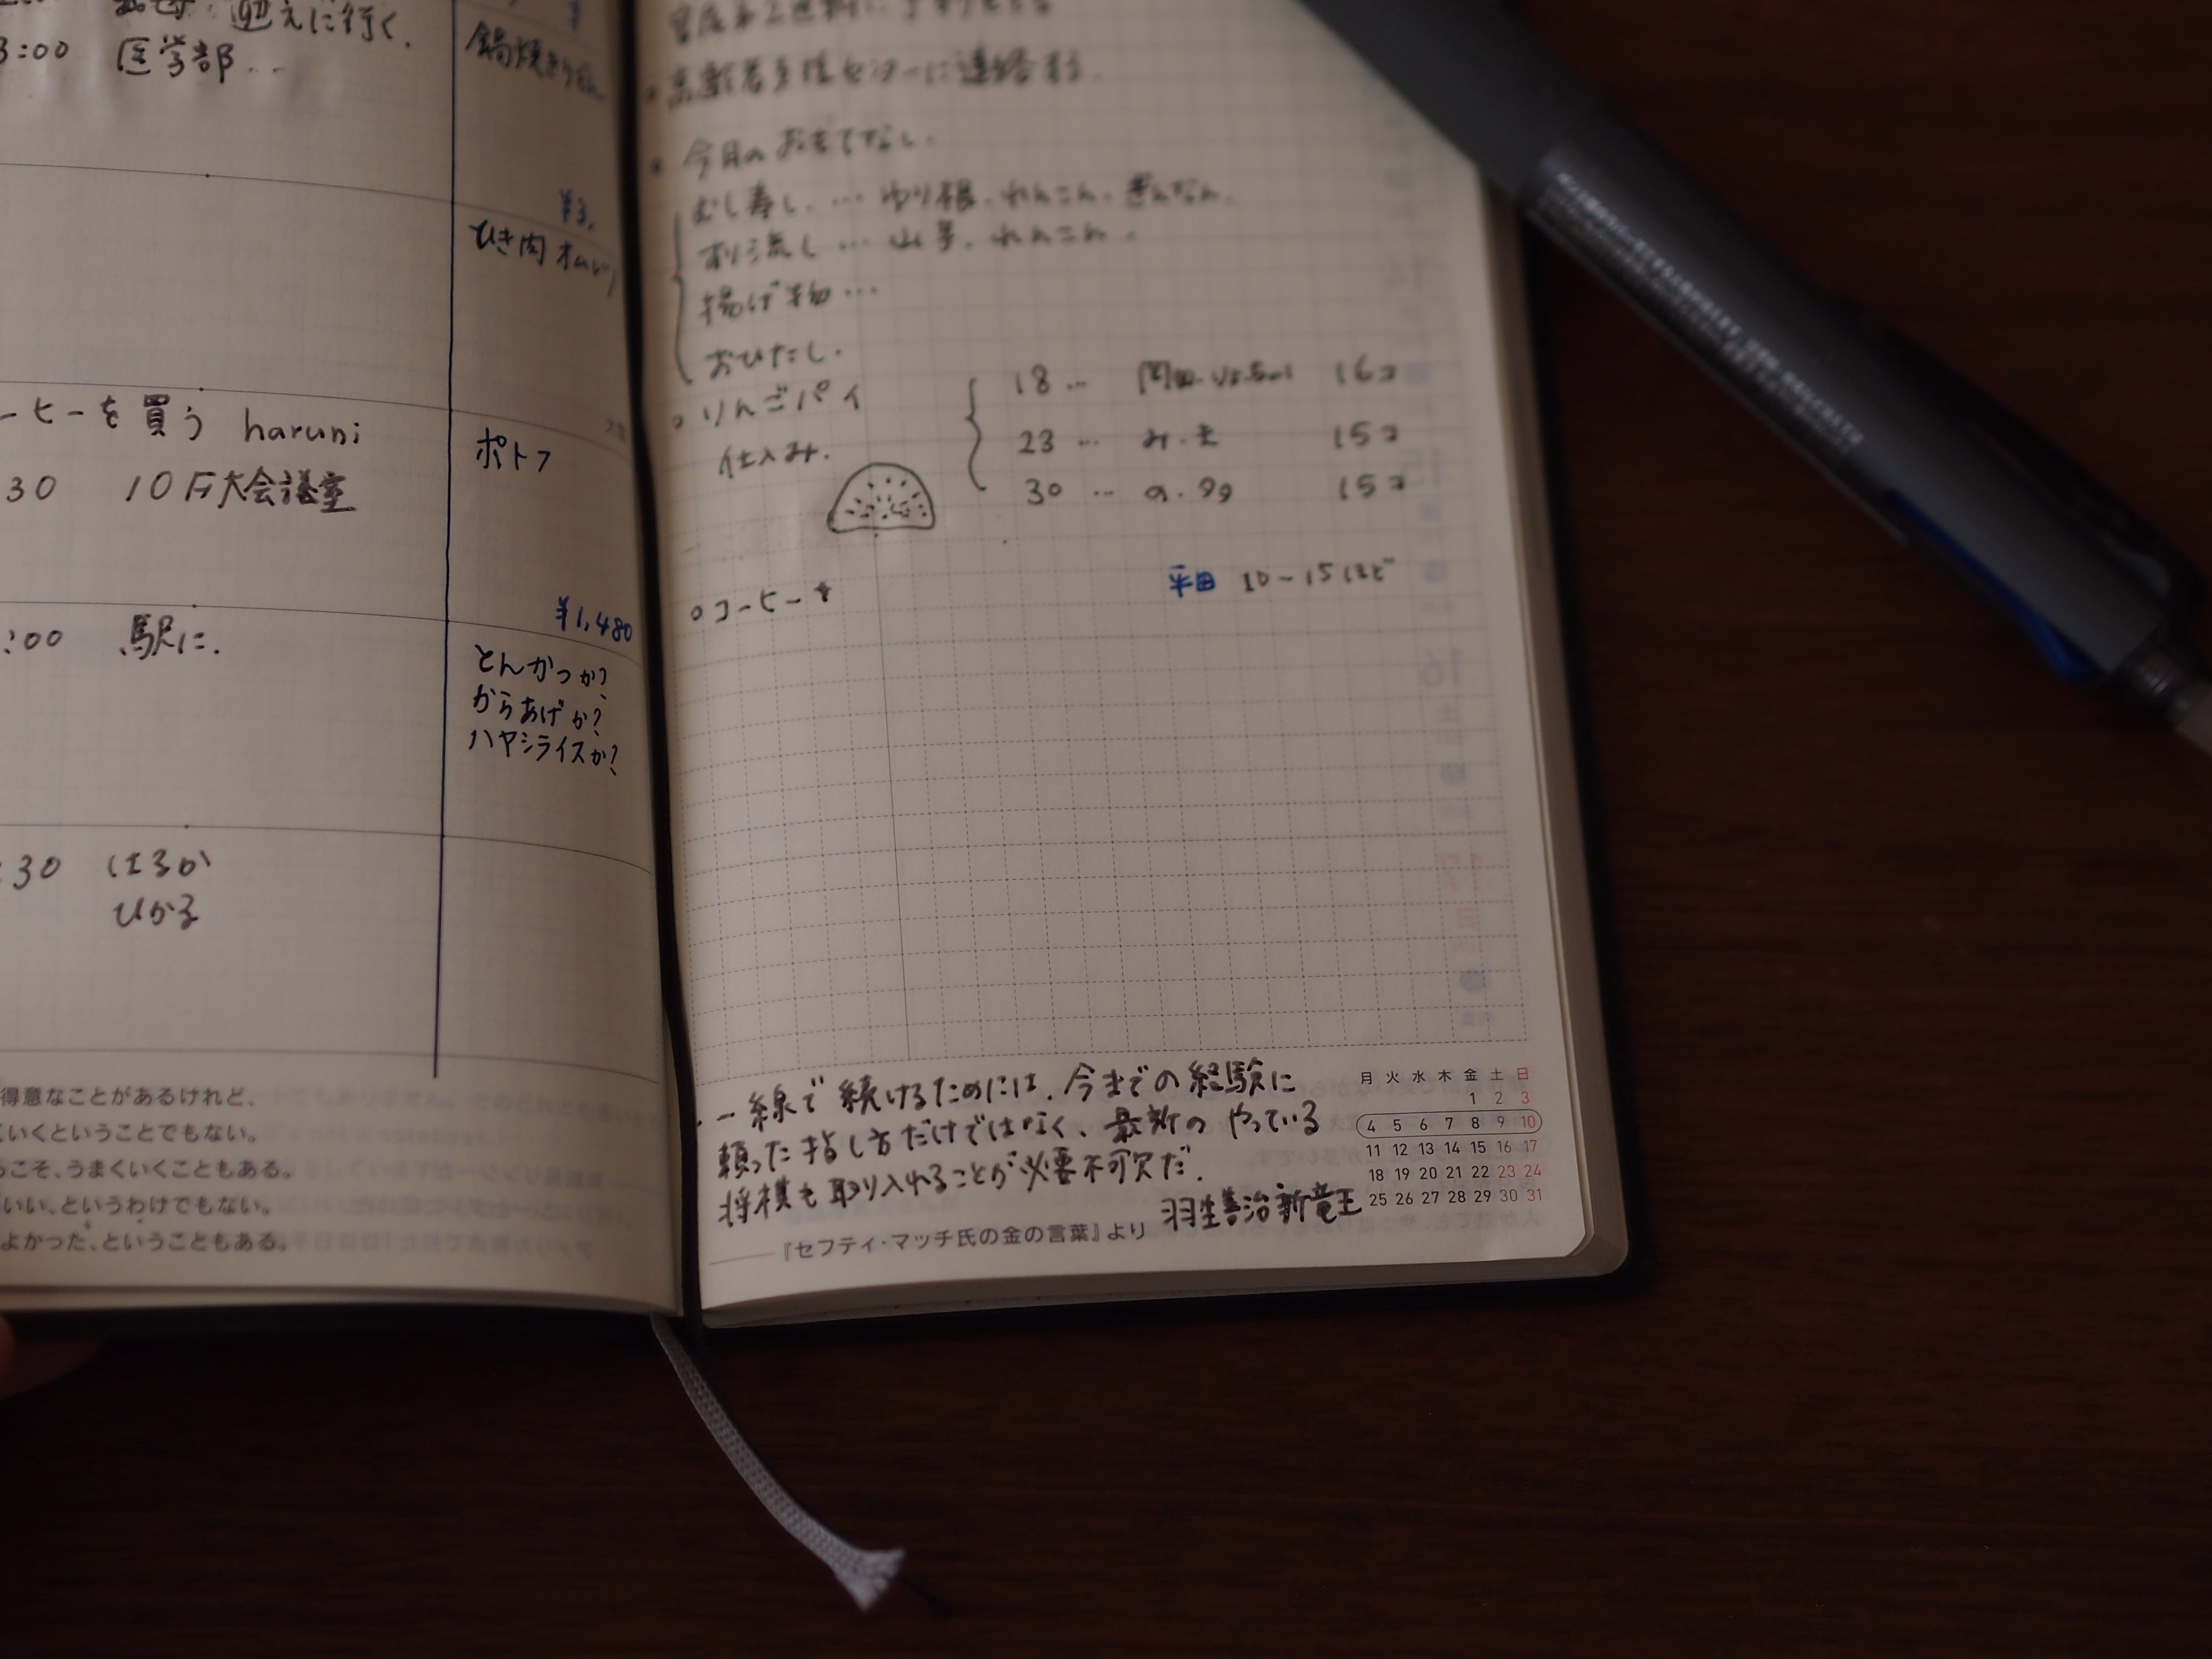 迎えに行く.
3:00 医学部...
鍋焼きうどん
¥3,
ひき肉オムレツ
ーヒーを買う haruni
30 10F大会議室
ポトフ
¥1,480
:00 駅に.
とんかつか?
からあげか?
ハヤシライスか?
:30 はるか
ひかる
得意なことがあるけれど、
いくということでもない。
こそ、うまくいくこともある。
いい、というわけでもない。
よかった、ということもある。
。高齢者支援センターに連絡する.
。今月のおもてなし.
むし寿し.… ゆり根.れんこん.ぎんなん.
すり流し… 山芋.れんこん.
揚げ物…
おひたし.
。りんごパイ
仕込み.
18… 16コ
23… み.き 15コ
30… 15コ
。コーヒー
平田 10-15ほど
一線で続けるためには.今までの経験に
頼った指し方だけではなく、最新の やっている
将棋も取り入れることが必要不可欠だ.
羽生善治新竜王
『セフティ・マッチ氏の金の言葉』より
月 火 水 木 金 土 日
1 2 3
4 5 6 7 8 9 10
11 12 13 14 15 16 17
18 19 20 21 22 23 24
25 26 27 28 29 30 31